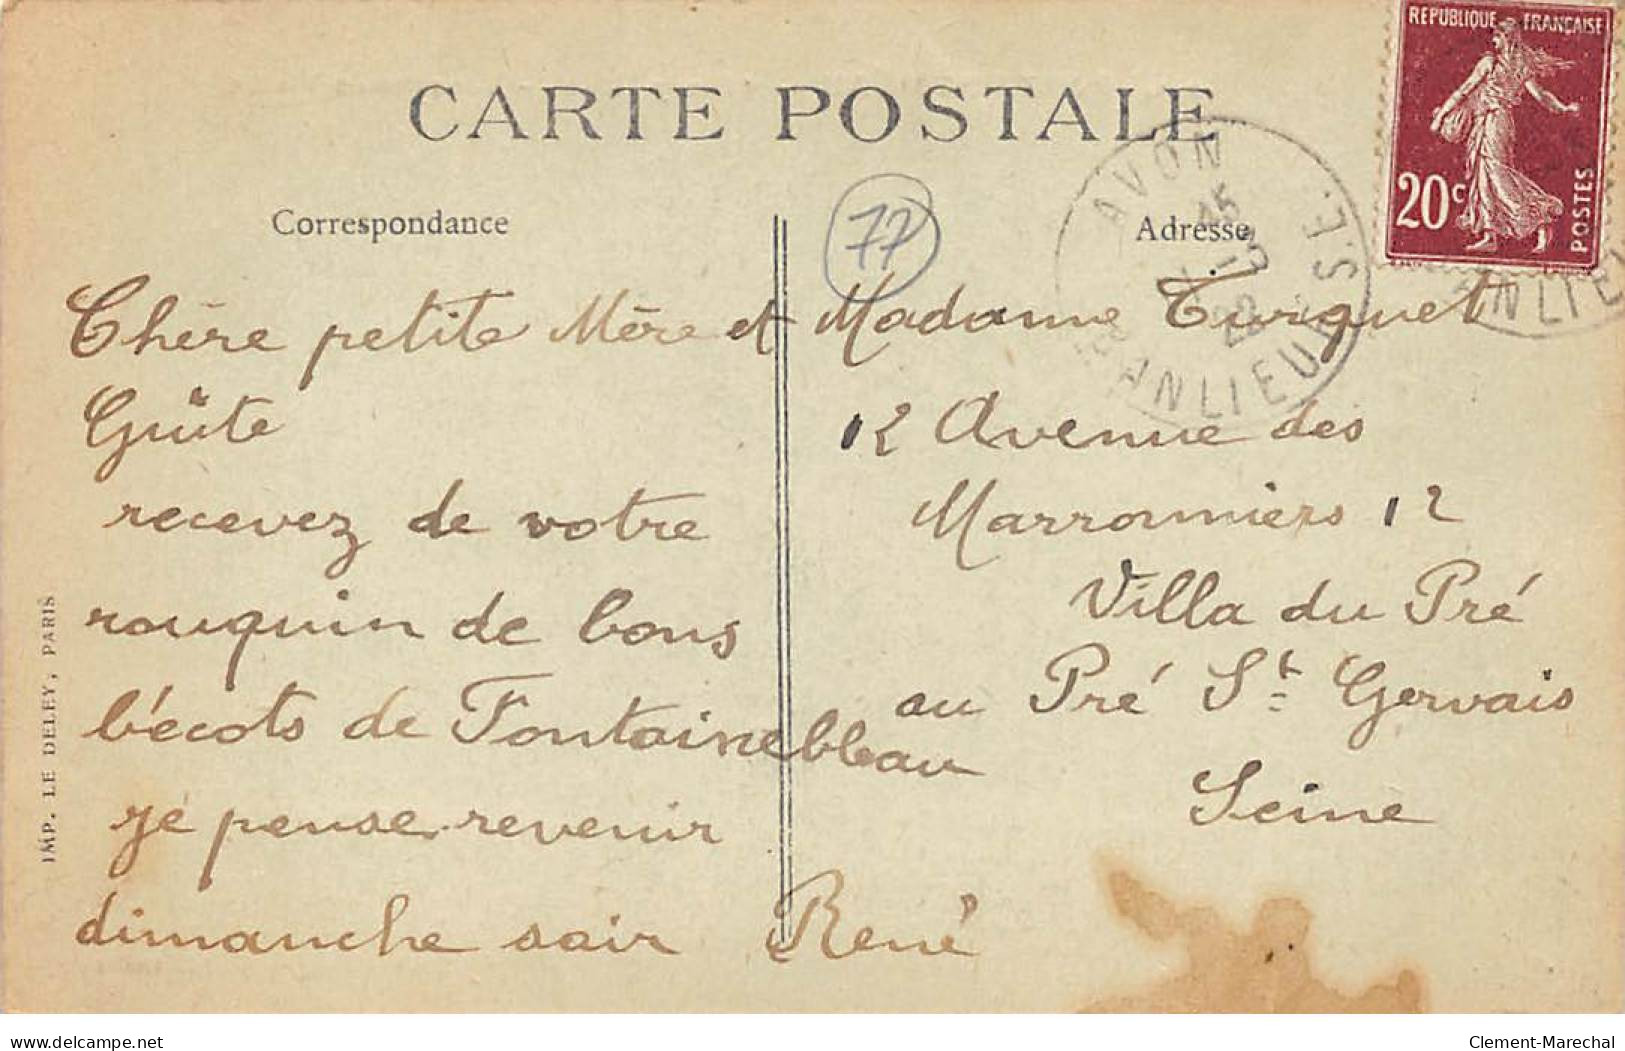 CARTE POSTALE
Correspondance
Chère petite Mère et
Guite
recevez de votre
rouquin de bons
bécots de Fontainebleau
je pense revenir
dimanche soir René
IMP. LE DELEY, PARIS
77
Adresse
Madame Turquet
12 Avenue des
Marronniers 12
Villa du Pré
au Pré St Gervais
Seine
REPUBLIQUE FRANÇAISE
20c
POSTES
AVON
BANLIEUE
ANLIE
delcampe.net
Clement-Marechal